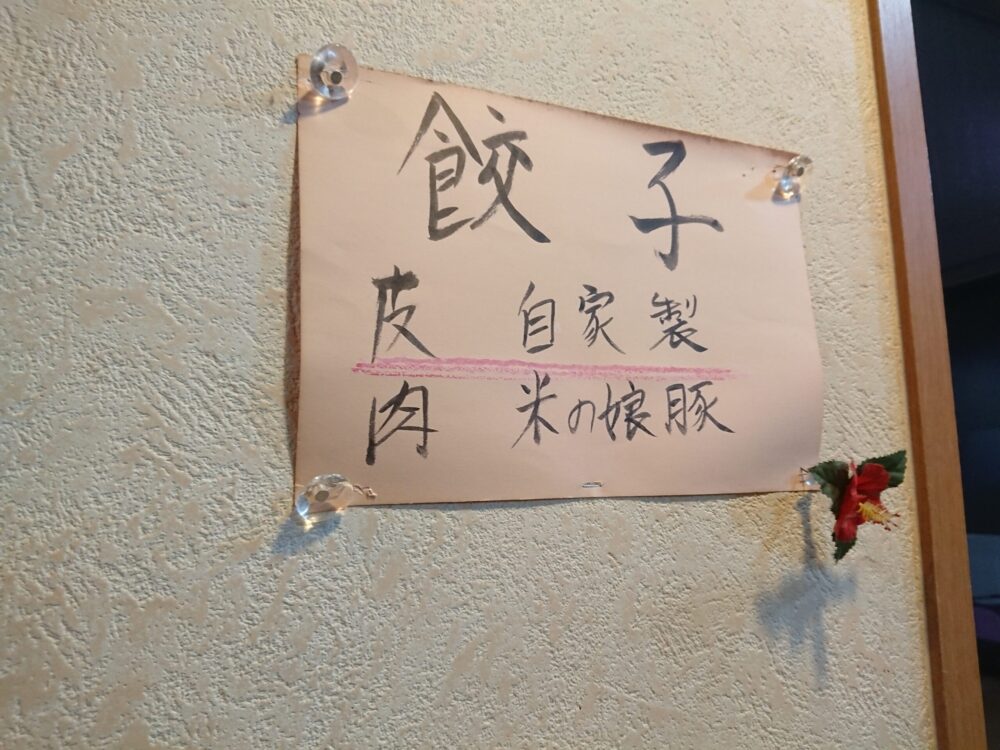 餃子
皮 自家製
肉 米の娘豚